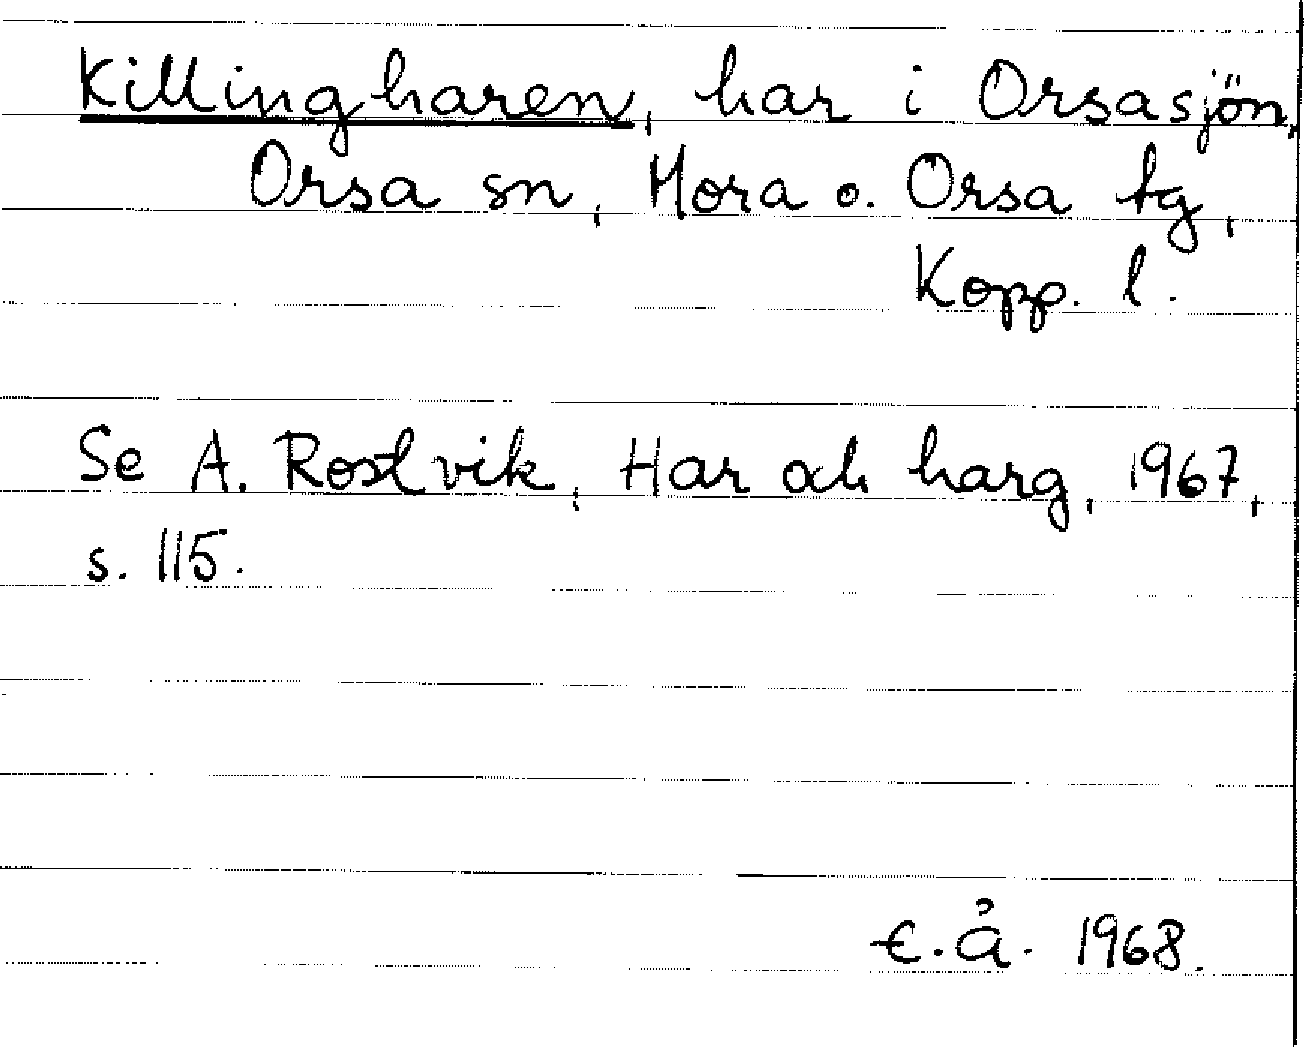 Killingharen, har i Orsasjön,
Orsa sn, Mora o. Orsa tg,
Kopp. l.
Se A. Rostvik, Har och harg, 1967,
s. 115.
E.Å. 1968.